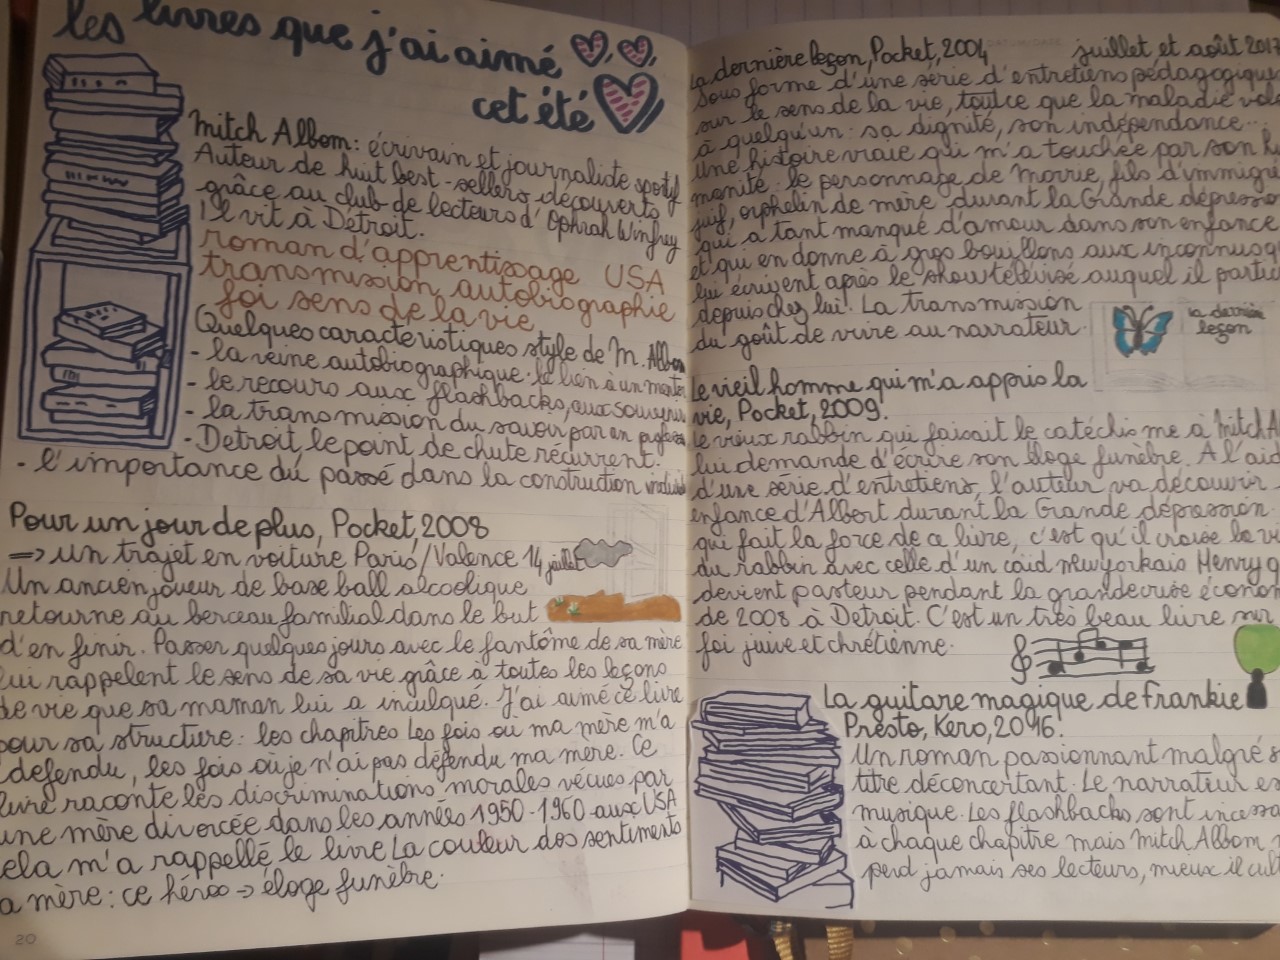 les livres que j'ai aimé
cet été
Mitch Albom: écrivain et journaliste sportif
Auteur de huit best-sellers découverts
grâce au club de lecteurs d'Ophrah Winfrey
Il vit à Détroit.
roman d'apprentissage USA
transmission autobiographie
foi sens de la vie
Quelques caractéristiques style de M. Albom
- la veine autobiographique. le lien à un mentor
- le recours aux flashbacks, aux souvenirs
- la transmission du savoir par un
- Detroit, le point de chute récurrent.
- l'importance du passé dans la construction
Pour un jour de plus, Pocket, 2008
⇒ un trajet en voiture Paris/Valence 14 juillet
Un ancien joueur de base ball alcoolique
retourne au berceau familial dans le but
d'en finir. Passer quelques jours avec le fantôme de sa mère
lui rappelent le sens de sa vie grâce à toutes les leçons
de vie que sa maman lui a inculqué. J'ai aimé ce livre
pour sa structure: les chapitres les fois où ma mère m'a
défendu, les fois où je n'ai pas défendu ma mère. Ce
livre raconte les discriminations morales vécues par
une mère divorcée dans les années 1950-1960 aux USA
ela m'a rappellé le livre La couleur des sentiments
a mère: ce héros → éloge funèbre.
20
La dernière leçon, Pocket, 2004
juillet et août 201
Sous forme d'une série d'entretiens pédagogiques
sur le sens de la vie, tout ce que la maladie vole
à quelqu'un: sa dignité, son indépendance...
Une histoire vraie qui m'a touchée par son hu
manité: le personnage de Morrie, fils d'immigré
juif, orphelin de mère durant la Grande dépression
qui a tant manqué d'amour dans son enfance
et qui en donne à gros bouillons aux inconnus q
lui écrivent après le show télévisé auquel il partici
depuis chez lui. La transmission
du goût de vivre au narrateur.
la dernière
leçon
Le vieil homme qui m'a appris la
vie, Pocket, 2009.
Le vieux rabbin qui faisait le catéchisme à Mitch A
lui demande d'écrire son éloge funèbre. A l'aid
d'une série d'entretiens, l'auteur va découvrir
enfance d'Albert durant la Grande dépression.
qui fait la force de ce livre, c'est qu'il croise la vi
du rabbin avec celle d'un caïd newyorkais Henry q
devient pasteur pendant la grande crise économ
de 2008 à Detroit. C'est un très beau livre sur
foi juive et chrétienne.
La guitare magique de Frankie
Presto, Kero, 2016.
Un roman passionnant malgré s
titre déconcertant. Le narrateur es
musique. Les flashbacks sont incessa
à chaque chapitre mais Mitch Albom
perd jamais ses lecteurs, mieux il cul